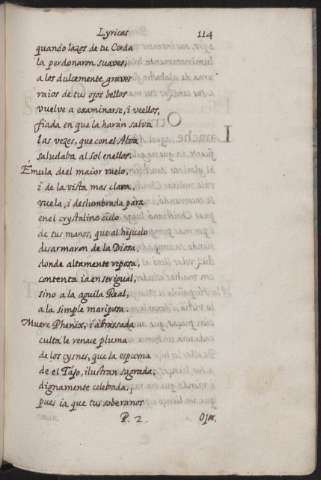 Lyricas 114
quando lazos de tu Corda
la perdonaron suaves,
a los dulcemente graves
raios de tus ojos bellos
vuelve a examinarse, i veellos,
fiada en que la harán salva
las vezes, que con el Alva
saludaba al Sol en ellos.
Émula de el maior vuelo,
i de la vista mas clara,
vuela, i deslumbrada pára
en el crystalino cielo
de tus manos, que al hijuelo
desarmaron de la Diosa,
donde altamente reposa,
contenta ia en ser igual,
sino a la aguila Real,
a la simple mariposa.
Muere Phenix, i abrasada
culta le renace pluma
de los cysnes, que la espuma
de el Tajo, ilustran sagrada;
dignamente celebrada,
pues ia que tus soberanos
P. 2. ojos